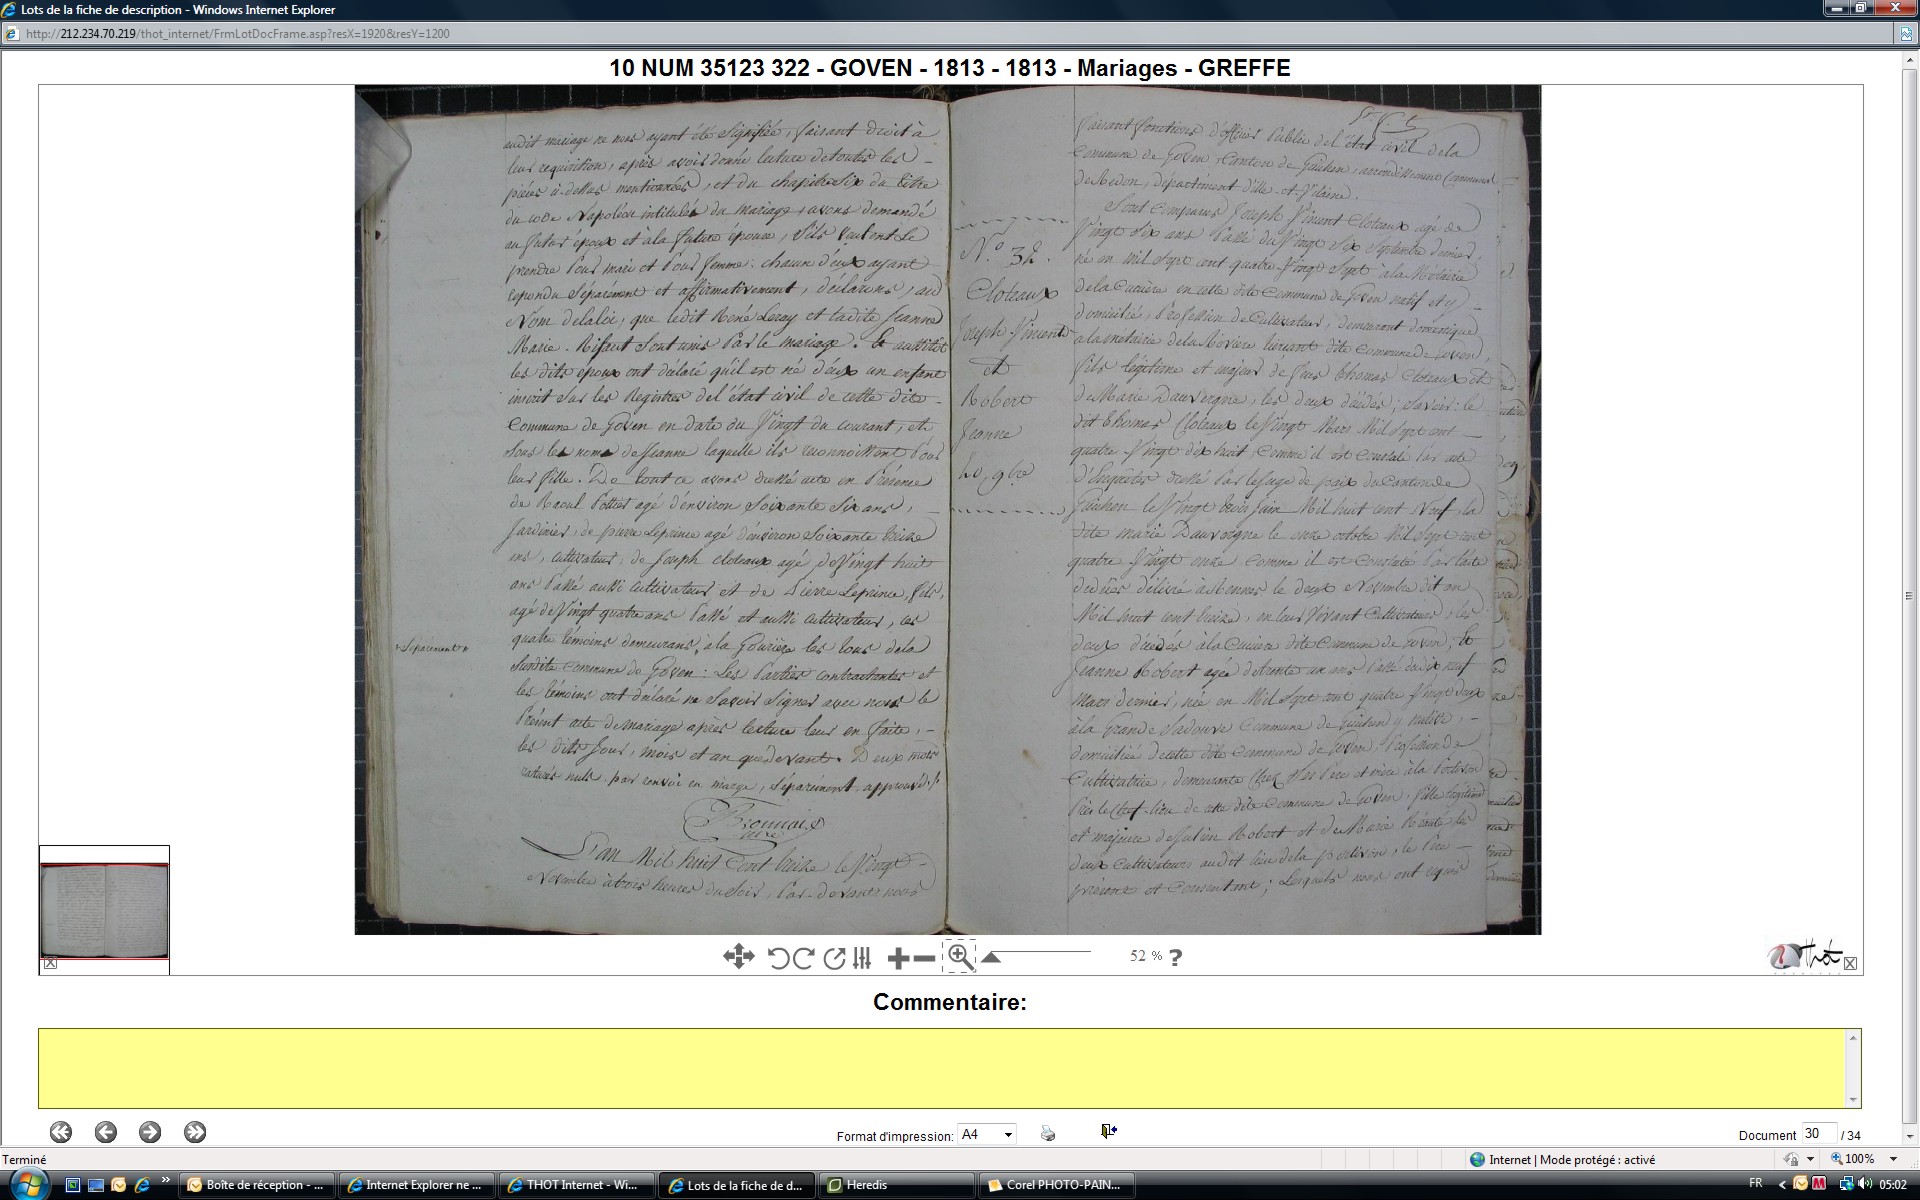 Lots de la fiche de description - Windows Internet Explorer
http://212.234.70.219/thot_internet/FrmLotDocFrame.asp?resX=1920&resY=1200
10 NUM 35123 322 - GOVEN - 1813 - 1813 - Mariages - GREFFE
audit mariage ne nous ayant été signifiée, faisant droit à
leur requisition, après avoir donné lecture de toutes les
pièces ci-dessus mentionnées, et du chapitre six du titre
du code Napoléon intitulé du mariage, avons demandé
au futur époux et à la future épouse, s'ils veulent se
prendre pour mari et pour femme: chacun d'eux ayant
repondu séparément et affirmativement, déclarons, au
Nom de la loi, que ledit René Leray et ladite Jeanne
Marie Rifaut sont unis par le mariage. Et aussitôt
les dits époux ont déclaré qu'il est né d'eux un enfant
inscrit sur les Registres de l'état civil de cette dite
Commune de Goven en date du Vingt du courant, et
sous les noms de Jeanne laquelle ils reconnoissent pour
leur fille. De tout ce avons dressé acte en Présence
de Raoul Pottier agé d'environ soixante six ans,
Jardinier, de pierre Leprince agé d'environ soixante treize
ans, cultivateur, de Joseph cloteaux agé de Vingt huit
ans passé aussi cultivateur et de Pierre Leprince, fils,
agé de Vingt quatre ans passé et aussi cultivateur, ces
quatre témoins demeurans à la Gouriere les tous de la
Susdite commune de Goven: Les Parties contractantes et
les témoins ont déclaré ne savoir signer avec nous le
Présent acte de mariage après lecture leur en faite,
les dits jour, mois et an que devant. Deux mots
raturés nuls. par renvoi en marge, séparément approuvé.
séparément
L'an Mil huit Cent treize le Vingt
Novembre à trois heures du soir, Par-devant nous
N.º 32.
Cloteaux
Joseph Vincent
et
Robert
Jeanne
20. 9bre
faisant fonctions d'officier Public de l'état civil de la
Commune de Goven, Canton de Guichen, arrondissement Communal
de Redon, département d'ille-et-Vilaine.
Sont comparus Joseph Vincent Cloteaux agé de
Vingt six ans passé du Vingt six Septembre dernier,
né en mil sept cent quatre Vingt sept à la Métairie
de la Cuviere en cette dite Commune de Goven natif et y
domicilié, Profession de Cultivateur, demeurant domestique
à la métairie de la Roviere dite Commune de Goven,
fils légitime et majeur de feus Thomas Cloteaux et
de Marie Dauvergne, les deux décédés; savoir: le
dit Thomas Cloteaux le Vingt Mars Mil sept cent
quatre-Vingt dix huit, comme il est Constaté par acte
d'Enquêtes dressé par le Juge de paix du Canton de
Guichen le Vingt trois Juin Mil huit cent Neuf, la
dite marie Dauvergne le onze octobre Mil sept cent
quatre Vingt onze comme il est Constaté par l'acte
de décès délivré à Rennes le deux Novembre dit an
Mil huit cent treize, en leur Vivant Cultivateurs, les
deux décédés à la Cuviere dite Commune de Goven, Et
Jeanne Robert agée de trente un ans passé du dix neuf
Mars dernier, née en Mil sept cent quatre Vingt deux
à la Grande Commune de Guichen y native,
domiciliée de cette dite Commune de Goven, Profession de
Cultivatrice, demeurante Chez ses Père et mère à la
Près le Chef-lieu de cette dite Commune de Goven, fille légitime
et majeure de Julien Robert et de Marie les
deux Cultivateurs audit lieu de la, le Père
présent et Consentant; Lesquels nous ont requis
52 %
Thot
Commentaire:
Format d'impression: A4
Document 30 / 34
Terminé
Internet | Mode protégé : activé
100%
Boîte de réception - ...
Internet Explorer ne ...
THOT Internet - Wi...
Lots de la fiche de d...
Heredis
Corel PHOTO-PAIN...
FR
05:02